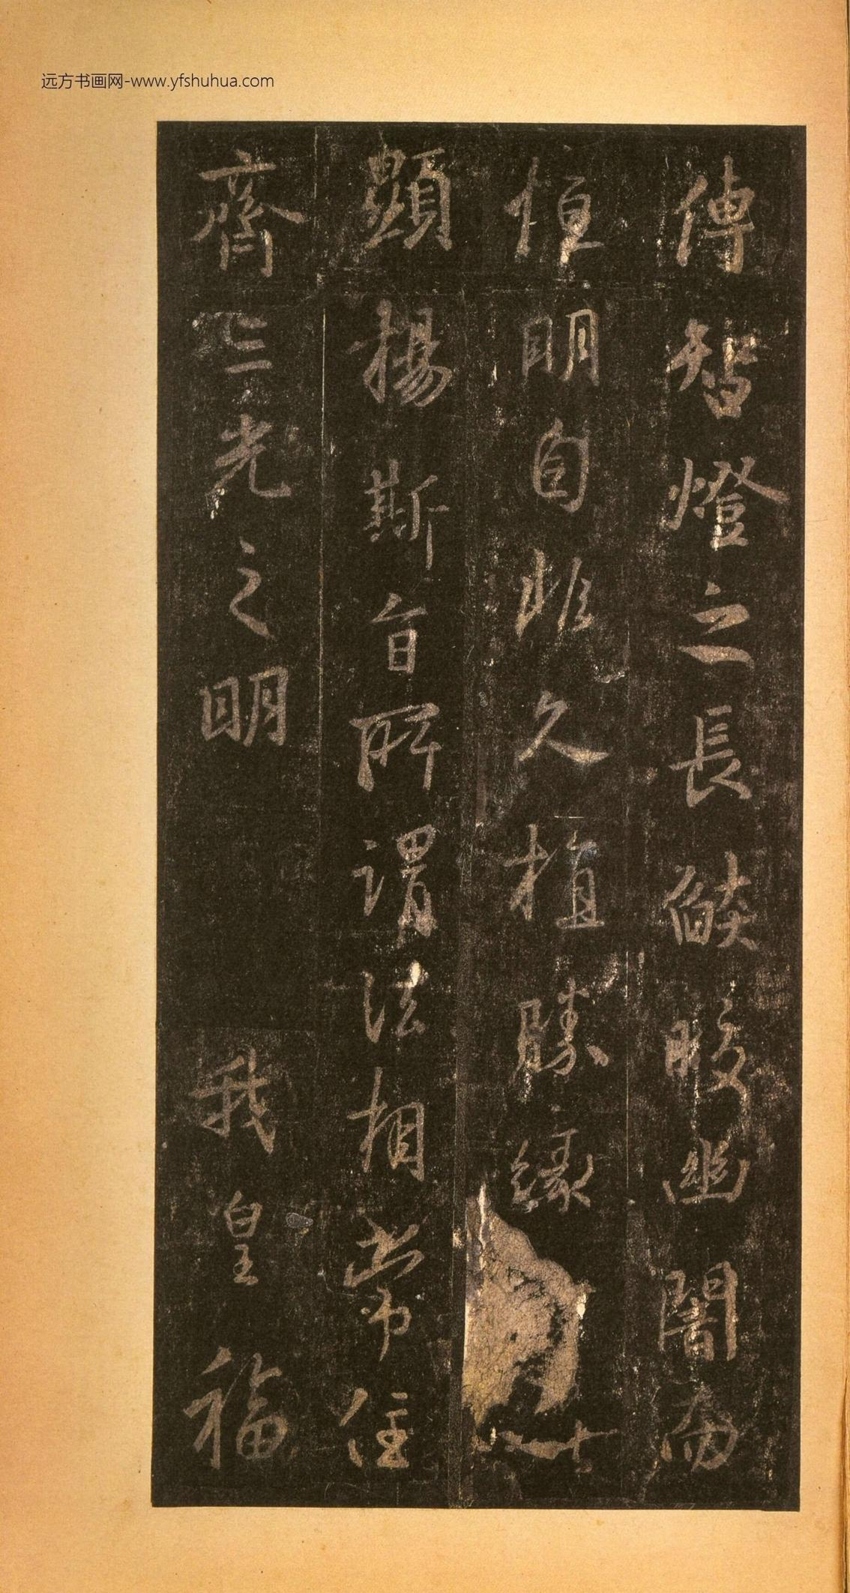 远方书画网-www.yfshuhua.com
傳智燈之長燄皎幽闇而
恒明自非久植勝緣以
顯揚斯旨所謂法相常住
齊三光之明　我皇福